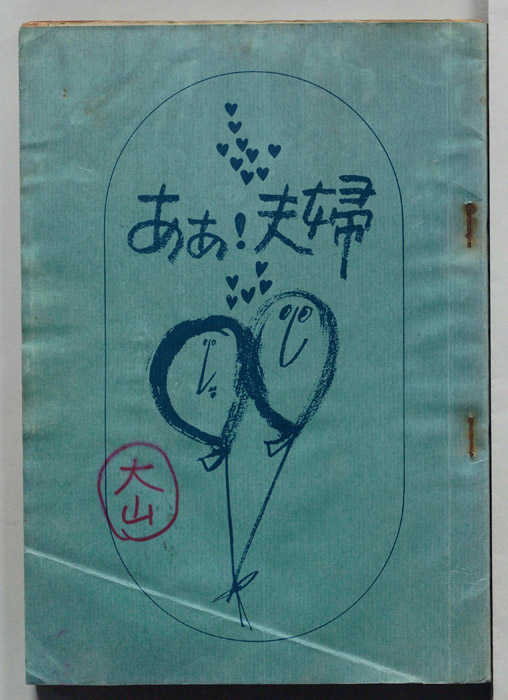 あぁ!夫婦
大山